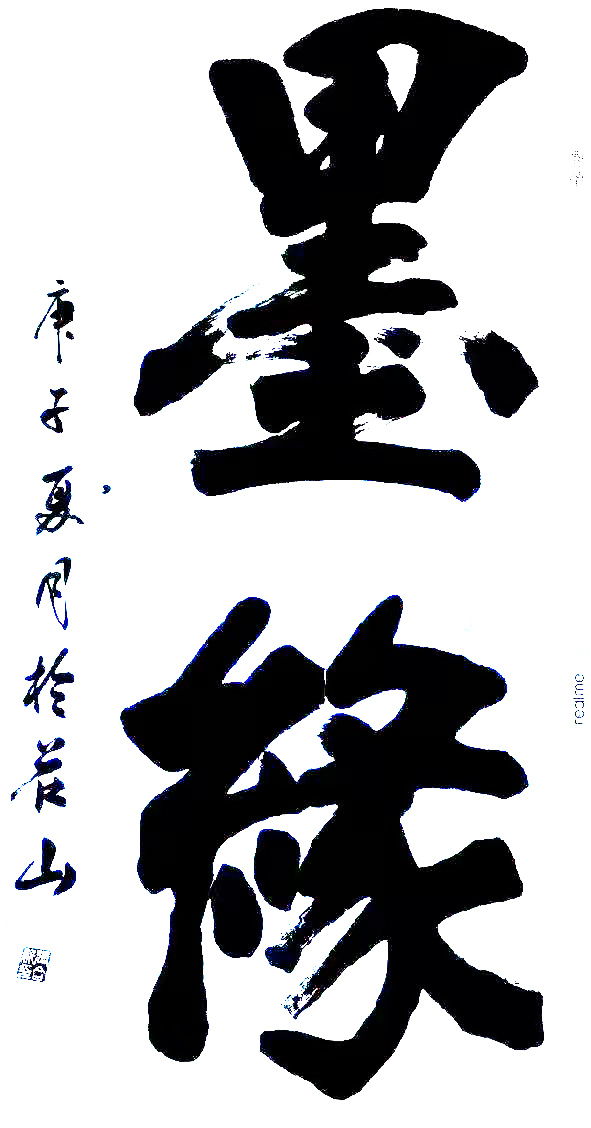 墨緣
庚子夏月於若山
realme